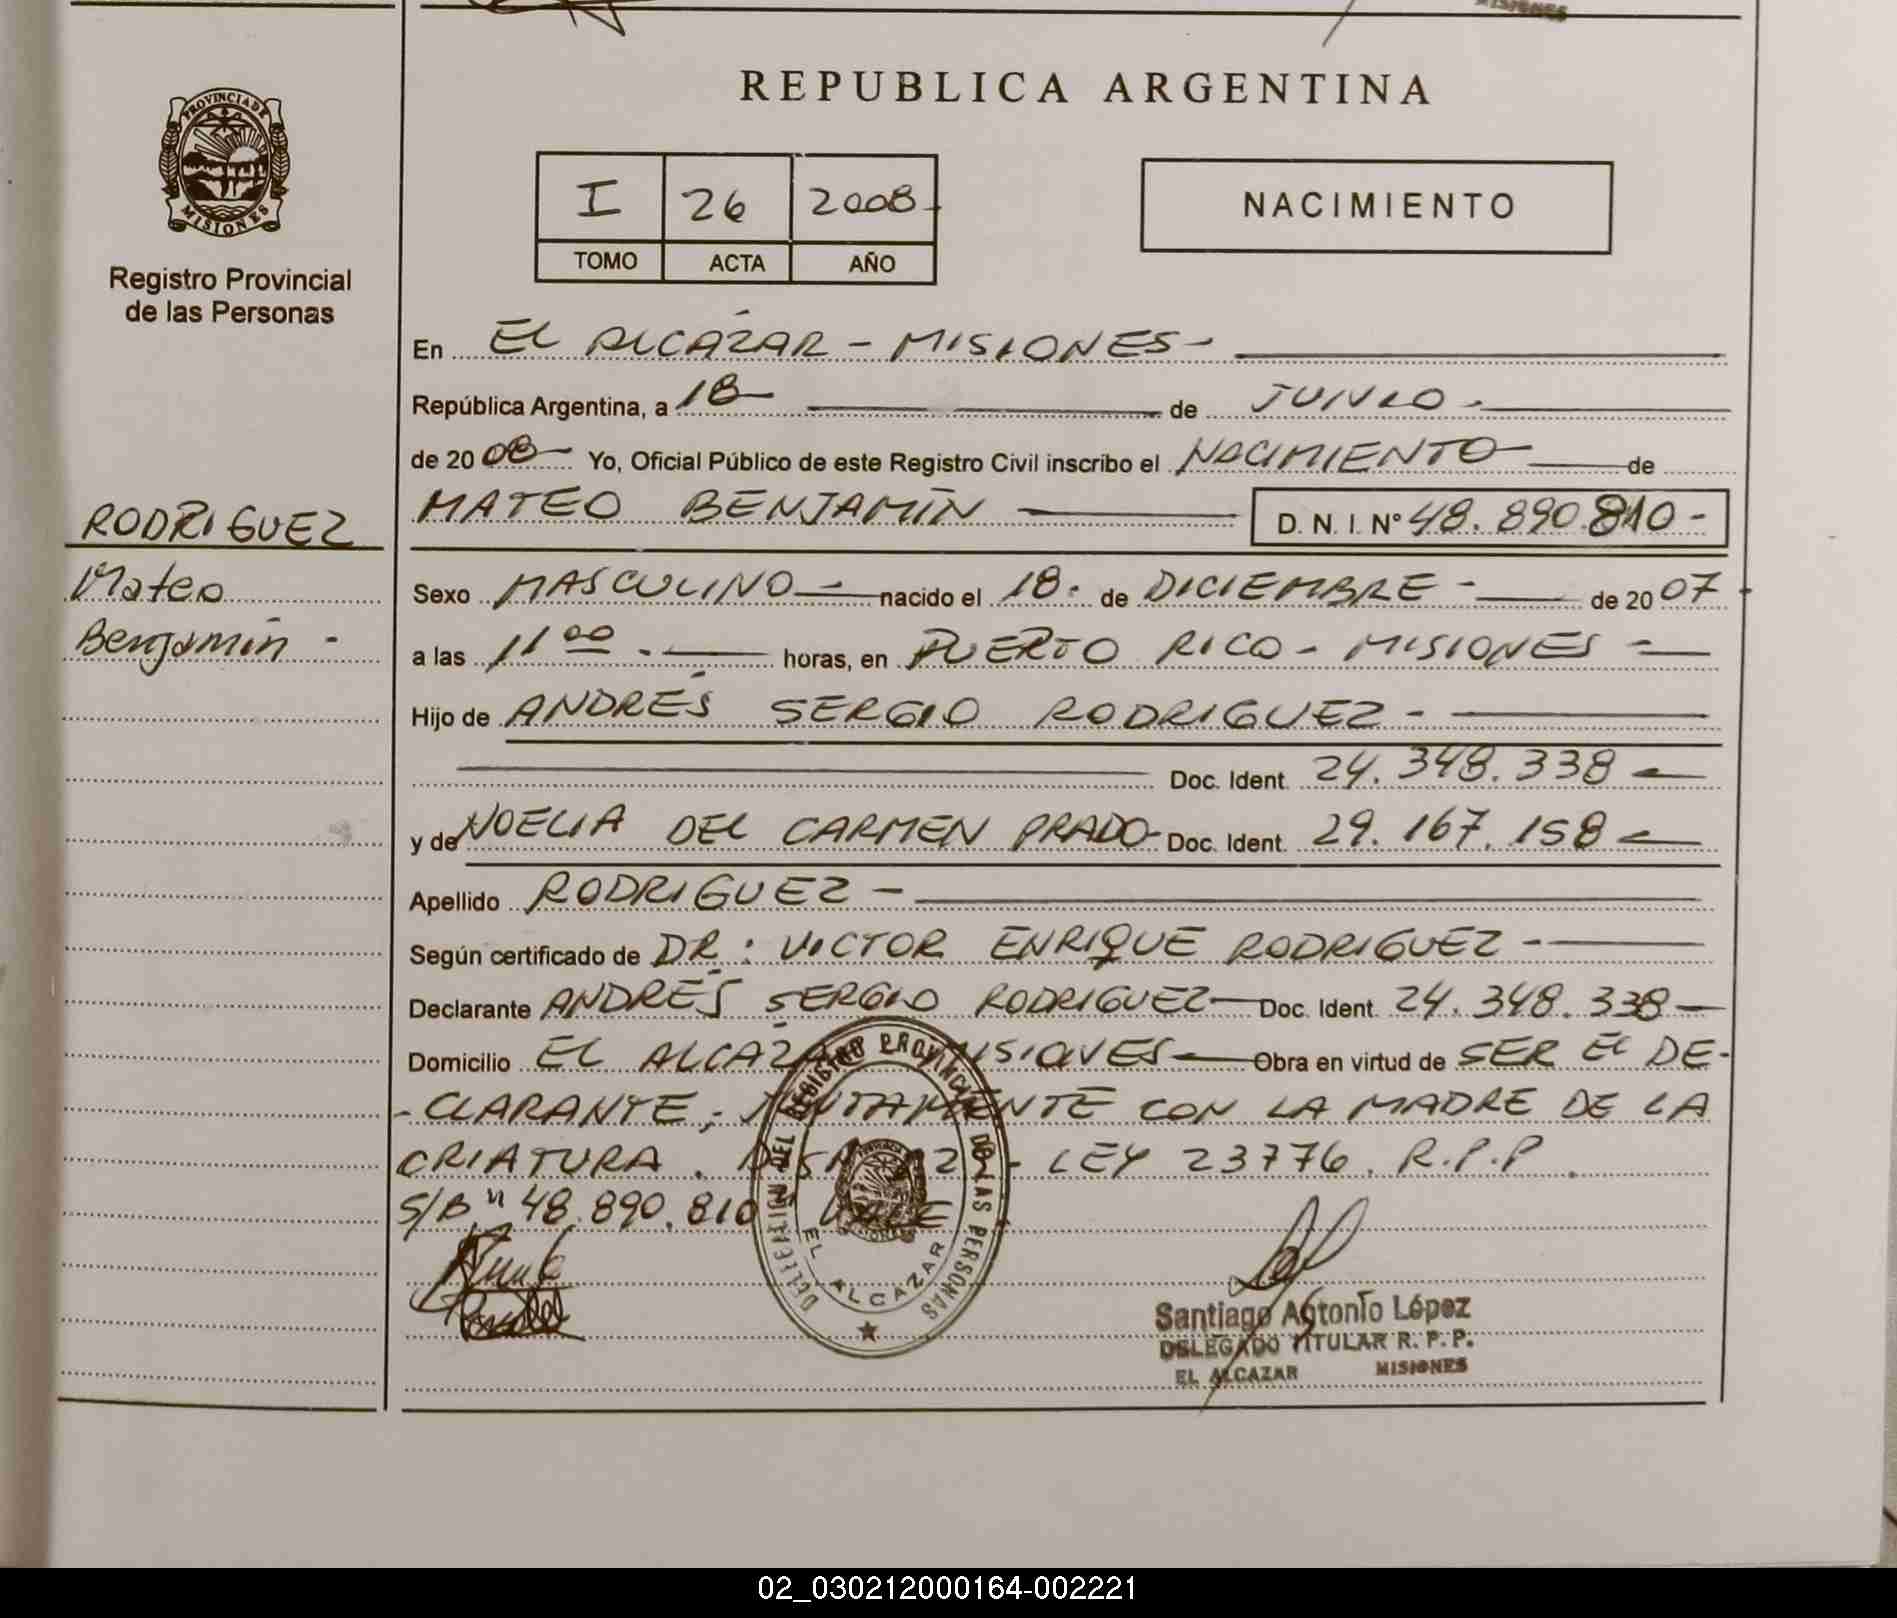 MISIONES
REPUBLICA ARGENTINA
PROVINCIA DE
MISIONES
Registro Provincial
de las Personas
I 26 2008-
TOMO ACTA AÑO
NACIMIENTO
En EL ALCÁZAR - MISIONES-
República Argentina, a 18- de JUNIO-
de 2008- Yo, Oficial Público de este Registro Civil inscribo el NACIMIENTO- de
RODRIGUEZ
Mateo
Benjamín -
MATEO BENJAMÍN D. N. I. N° 48.890.810-
Sexo MASCULINO- nacido el 18. de DICIEMBRE- de 2007-
a las 11 00 . - horas, en PUERTO RICO - MISIONES -
Hijo de ANDRÉS SERGIO RODRIGUEZ -
Doc. Ident. 24.348.338-
y de NOELIA DEL CARMEN PRADO- Doc. Ident. 29.167.158-
Apellido RODRIGUEZ -
Según certificado de DR: VICTOR ENRIQUE RODRIGUEZ -
Declarante ANDRÉS SERGIO RODRIGUEZ- Doc. Ident. 24.348.338-
Domicilio EL ALCÁZAR MISIONES- Obra en virtud de SER EL DE-
-CLARANTE, JUNTAMENTE CON LA MADRE DE LA
CRIATURA. - LEY 23776. R.P.P.
S/B "48.890.810" VALE
DELEGACION DEL REGISTRO PROVINCIAL DE LAS PERSONAS
EL ALCAZAR
Santiago Antonio López
DELEGADO TITULAR R. P. P.
EL ALCAZAR MISIONES
02_030212000164-002221